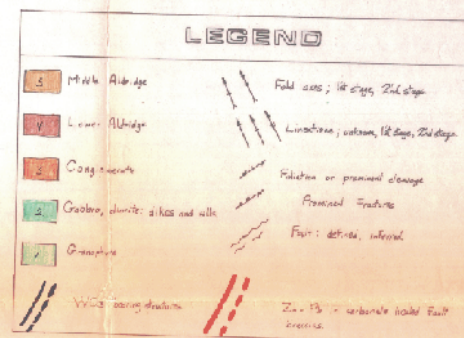 LEGEND
5 Middle Aldridge
4 Lower Aldridge
3 Conglomerate
2 Gabbro, diorite: dikes and sills
1 Granophyre
bearing structures
Fold axes; 1st stage, 2nd stage
Lineations; unknown, 1st stage, 2nd stage
Foliation or prominent cleavage
Prominent Fractures
Fault: defined, inferred
Zn - Pb - carbonate healed Fault
breccias